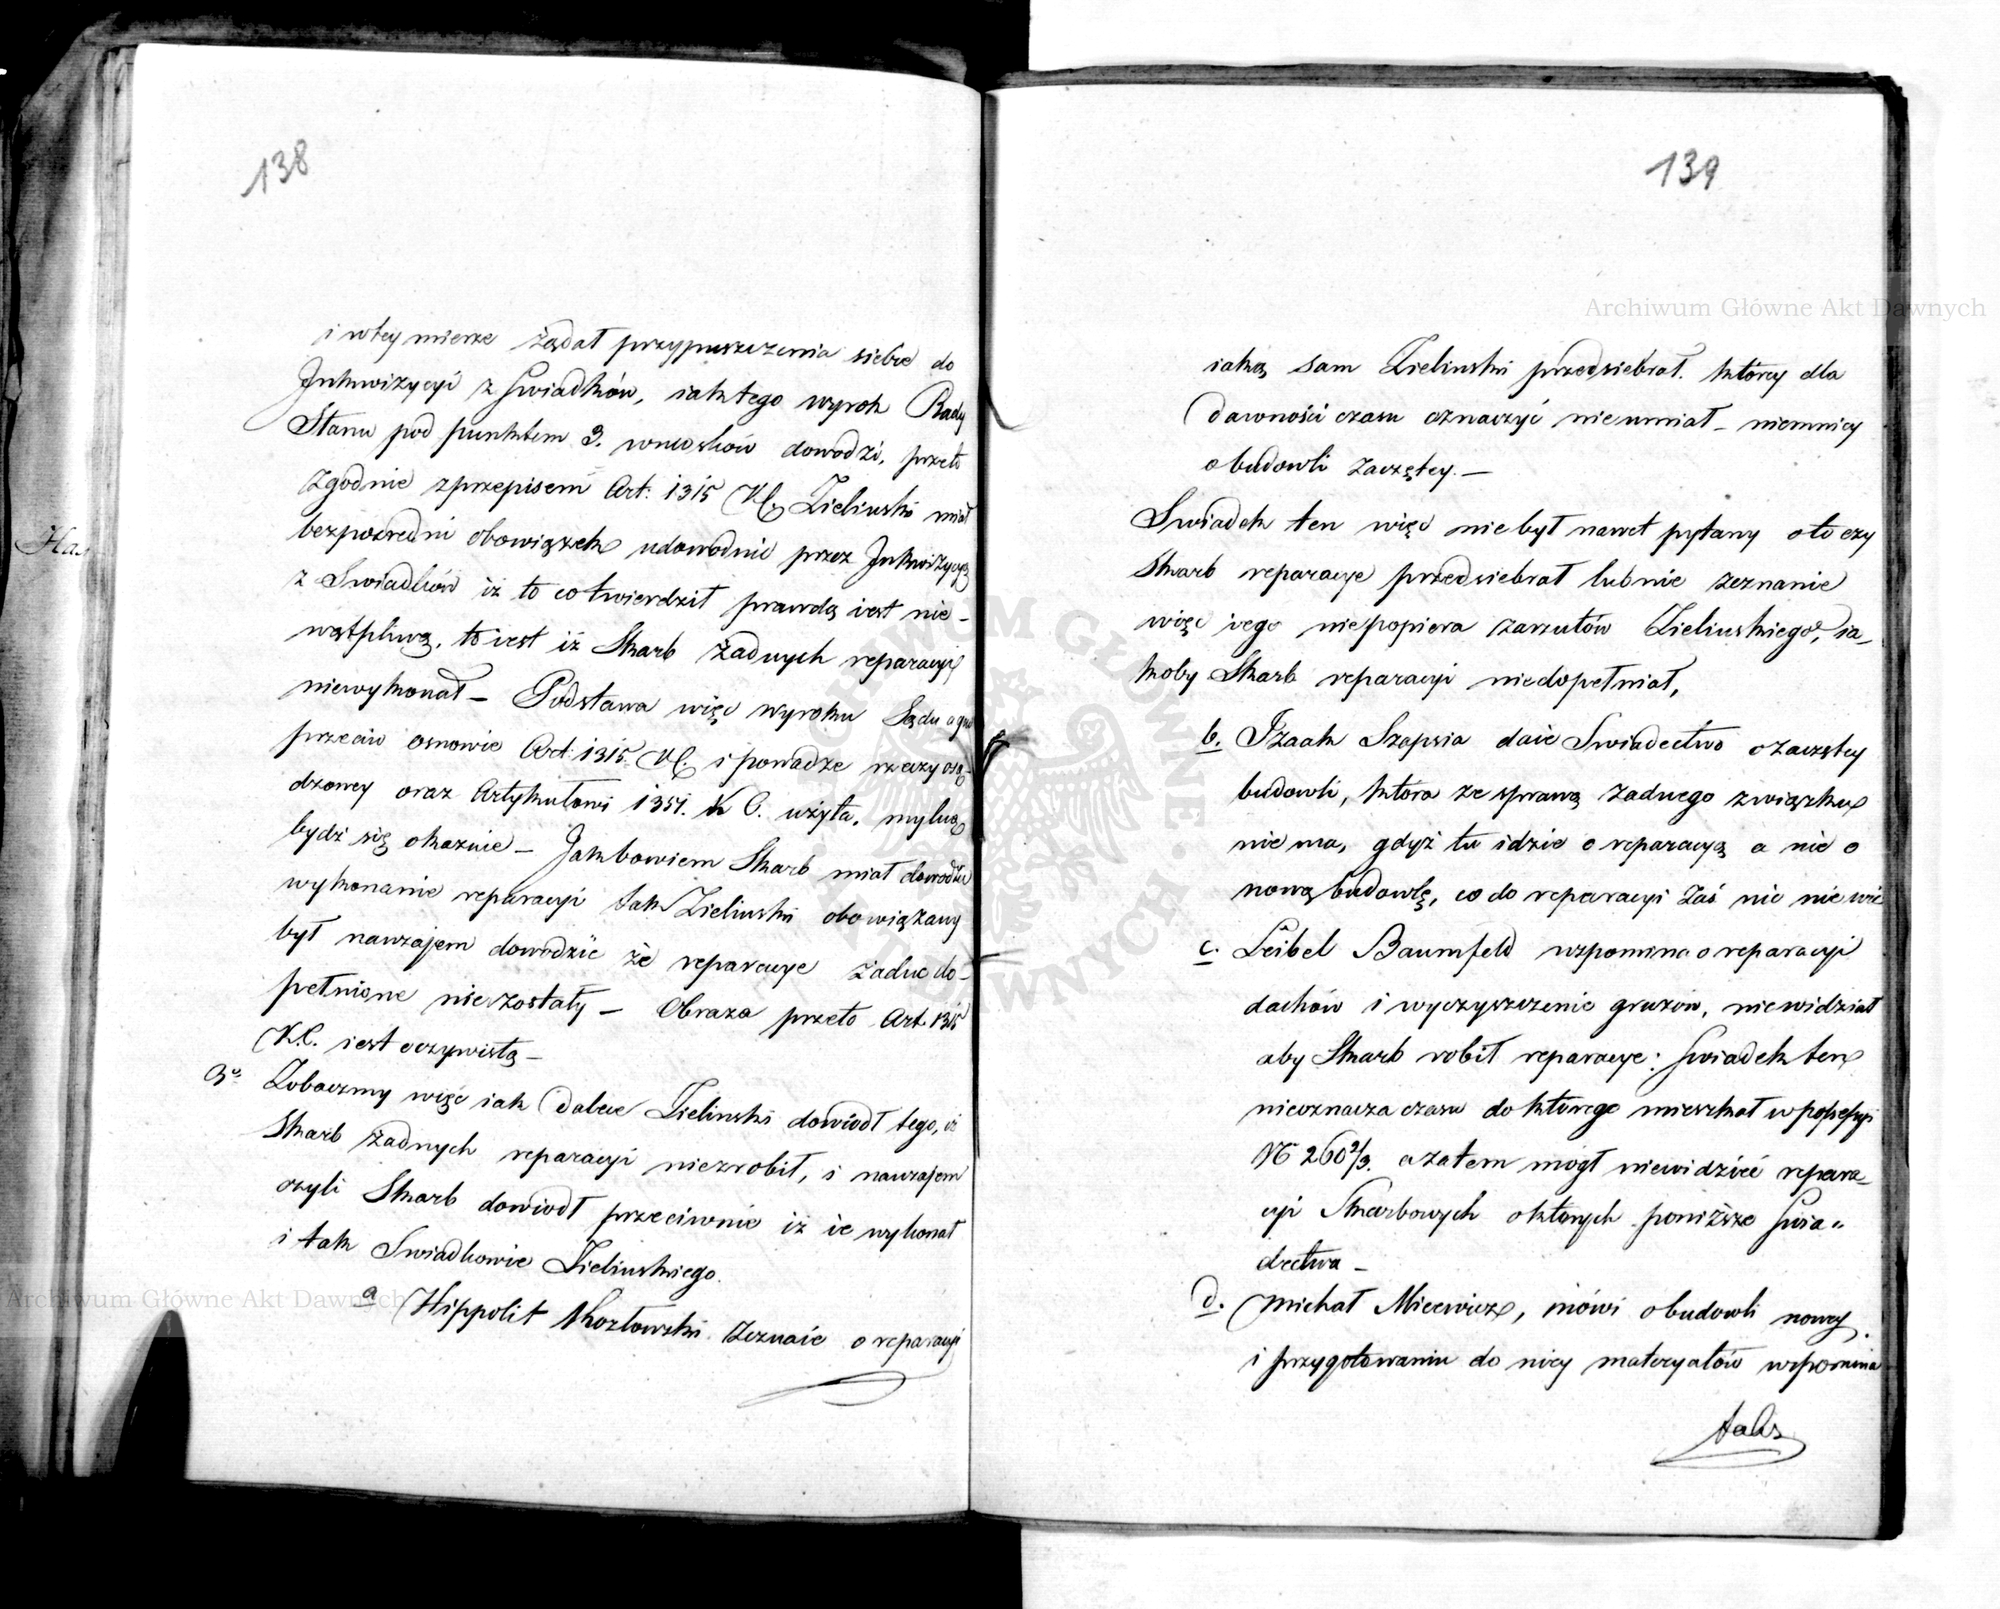 138
i wtey mierze żądał przypuszczenia siebie do
Inkwizycyi z Swiadków, iak tego wyrok Rady
Stanu pod punktem 3. wniosków dowodzi, przeto
Zgodnie zprzepisem Art: 1315 KC. Zieliński miał
bezpośredni obowiązek udowodnić przez Inkwizycyą
z Swiadków iż to co twierdził prawdą iest nie-
wątpliwą, to iest iż Skarb żadnych reparacyi
niewykonał – Podstawa więc wyroku Sądu
przeciw osnowie Art: 1315. KC. i powadze rzeczy osą-
dzoney oraz Artykułowi 1351. K C. użyta, mylną
bydź się okazuie – Jak bowiem Skarb miał dowodzić
wykonanie reparacyi tak Zieliński obowiązany
był nawzajem dowodzić że reparacye żadne do-
pełnione niezostały – Obraza przeto Art. 1315
K.C. iest oczywistą –
3o Zobaczmy więc iak dalece Zieliński dowiódł tego, iż
Skarb żadnych reparacyi niezrobił, i nawzajem
czyli Skarb dowiódł przeciwnie iż ie wykonał
i tak Swiadkowie Zielińskiego.
a Hippolit Kozłowski. Zeznaie o reparacyi
Has
139
iaką sam Zieliński przedsiebrał. którey dla
dawności czasu oznaczyć nie umiał – niemniey
o budowli zaczętey. –
Swiadek ten więc nie był nawet pytany oto czy
Skarb reparacye przedsiebrał lub nie zeznanie
więc iego niepopiera zarzutów Zielińskiego, ia-
koby Skarb reparacyi niedopełniał,
b. Izaak Szapsia daie Swiadectwo o zaczętey
budowli, która ze sprawą żadnego związku
nie ma, gdyż tu idzie o reparacyą a nie o
nową budowlę, co do reparacyi zaś nic nie wie
c. Leibel Baumfeld wspomina o reparacyi
dachów i wyczyszczenie gruzów, niewidział
aby Skarb robił reparacye: Swiadek ten
nieoznacza czasu do którego mieszkał w possessyi
N 260 2/3. a zatem mógł niewidzieć repara-
cyi Skarbowych o których poniższe Swia-
dectwa –
d. Michał Micewicz, mówi o budowli nowey,
i przygotowaniu do niey materyałów wspomina
także
Archiwum Główne Akt Dawnych
Archiwum Główne Akt Dawnych
ARCHIWUM GŁÓWNE AKT DAWNYCH